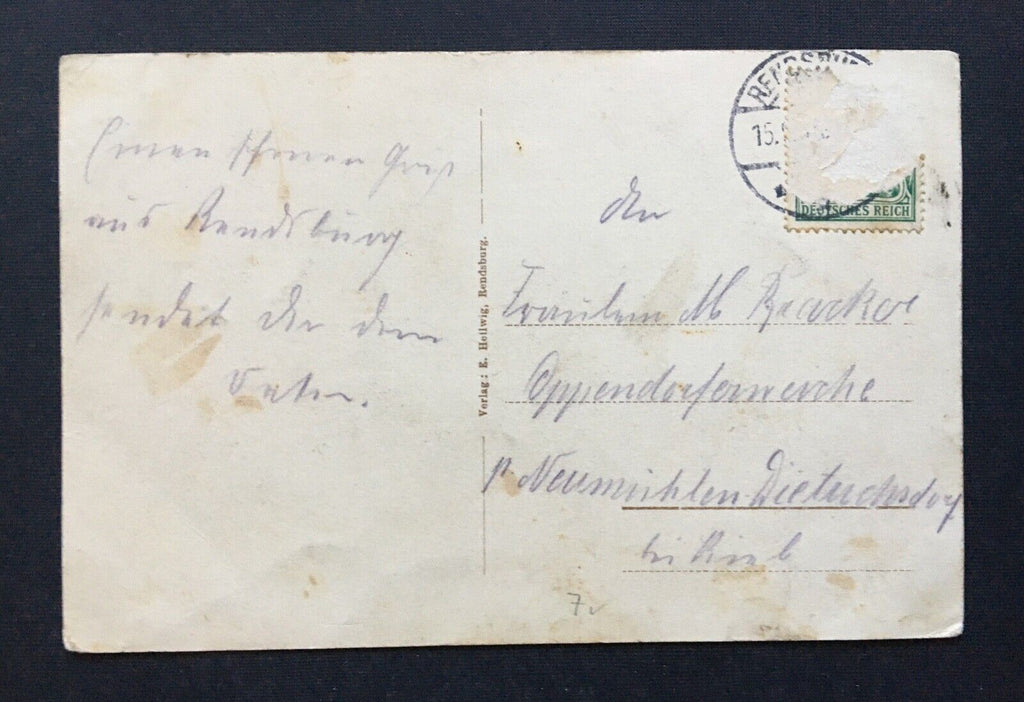 Einen schönen Gruß
aus Rendsburg
sendet Dir dein
Vater.
Verlag: E. Hellwig, Rendsburg.
RENDSBU
15.
DEUTSCHES REICH
An
Fräulein M
Oppendorferweiche
p. Neumühlen-Dietrichsdorf
bei Kiel
7